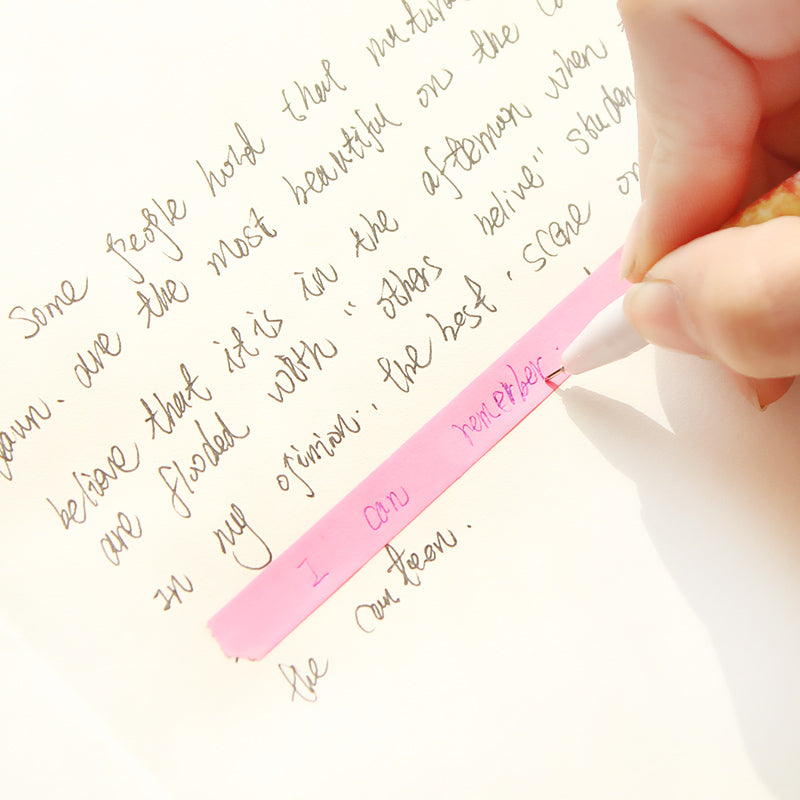 Some people hold that
are the most beautiful on the
believe that it is in the afternoon when
are flooded with " others belive" studen
in my opinion., the best. scene on
I can remember.
the canteen.